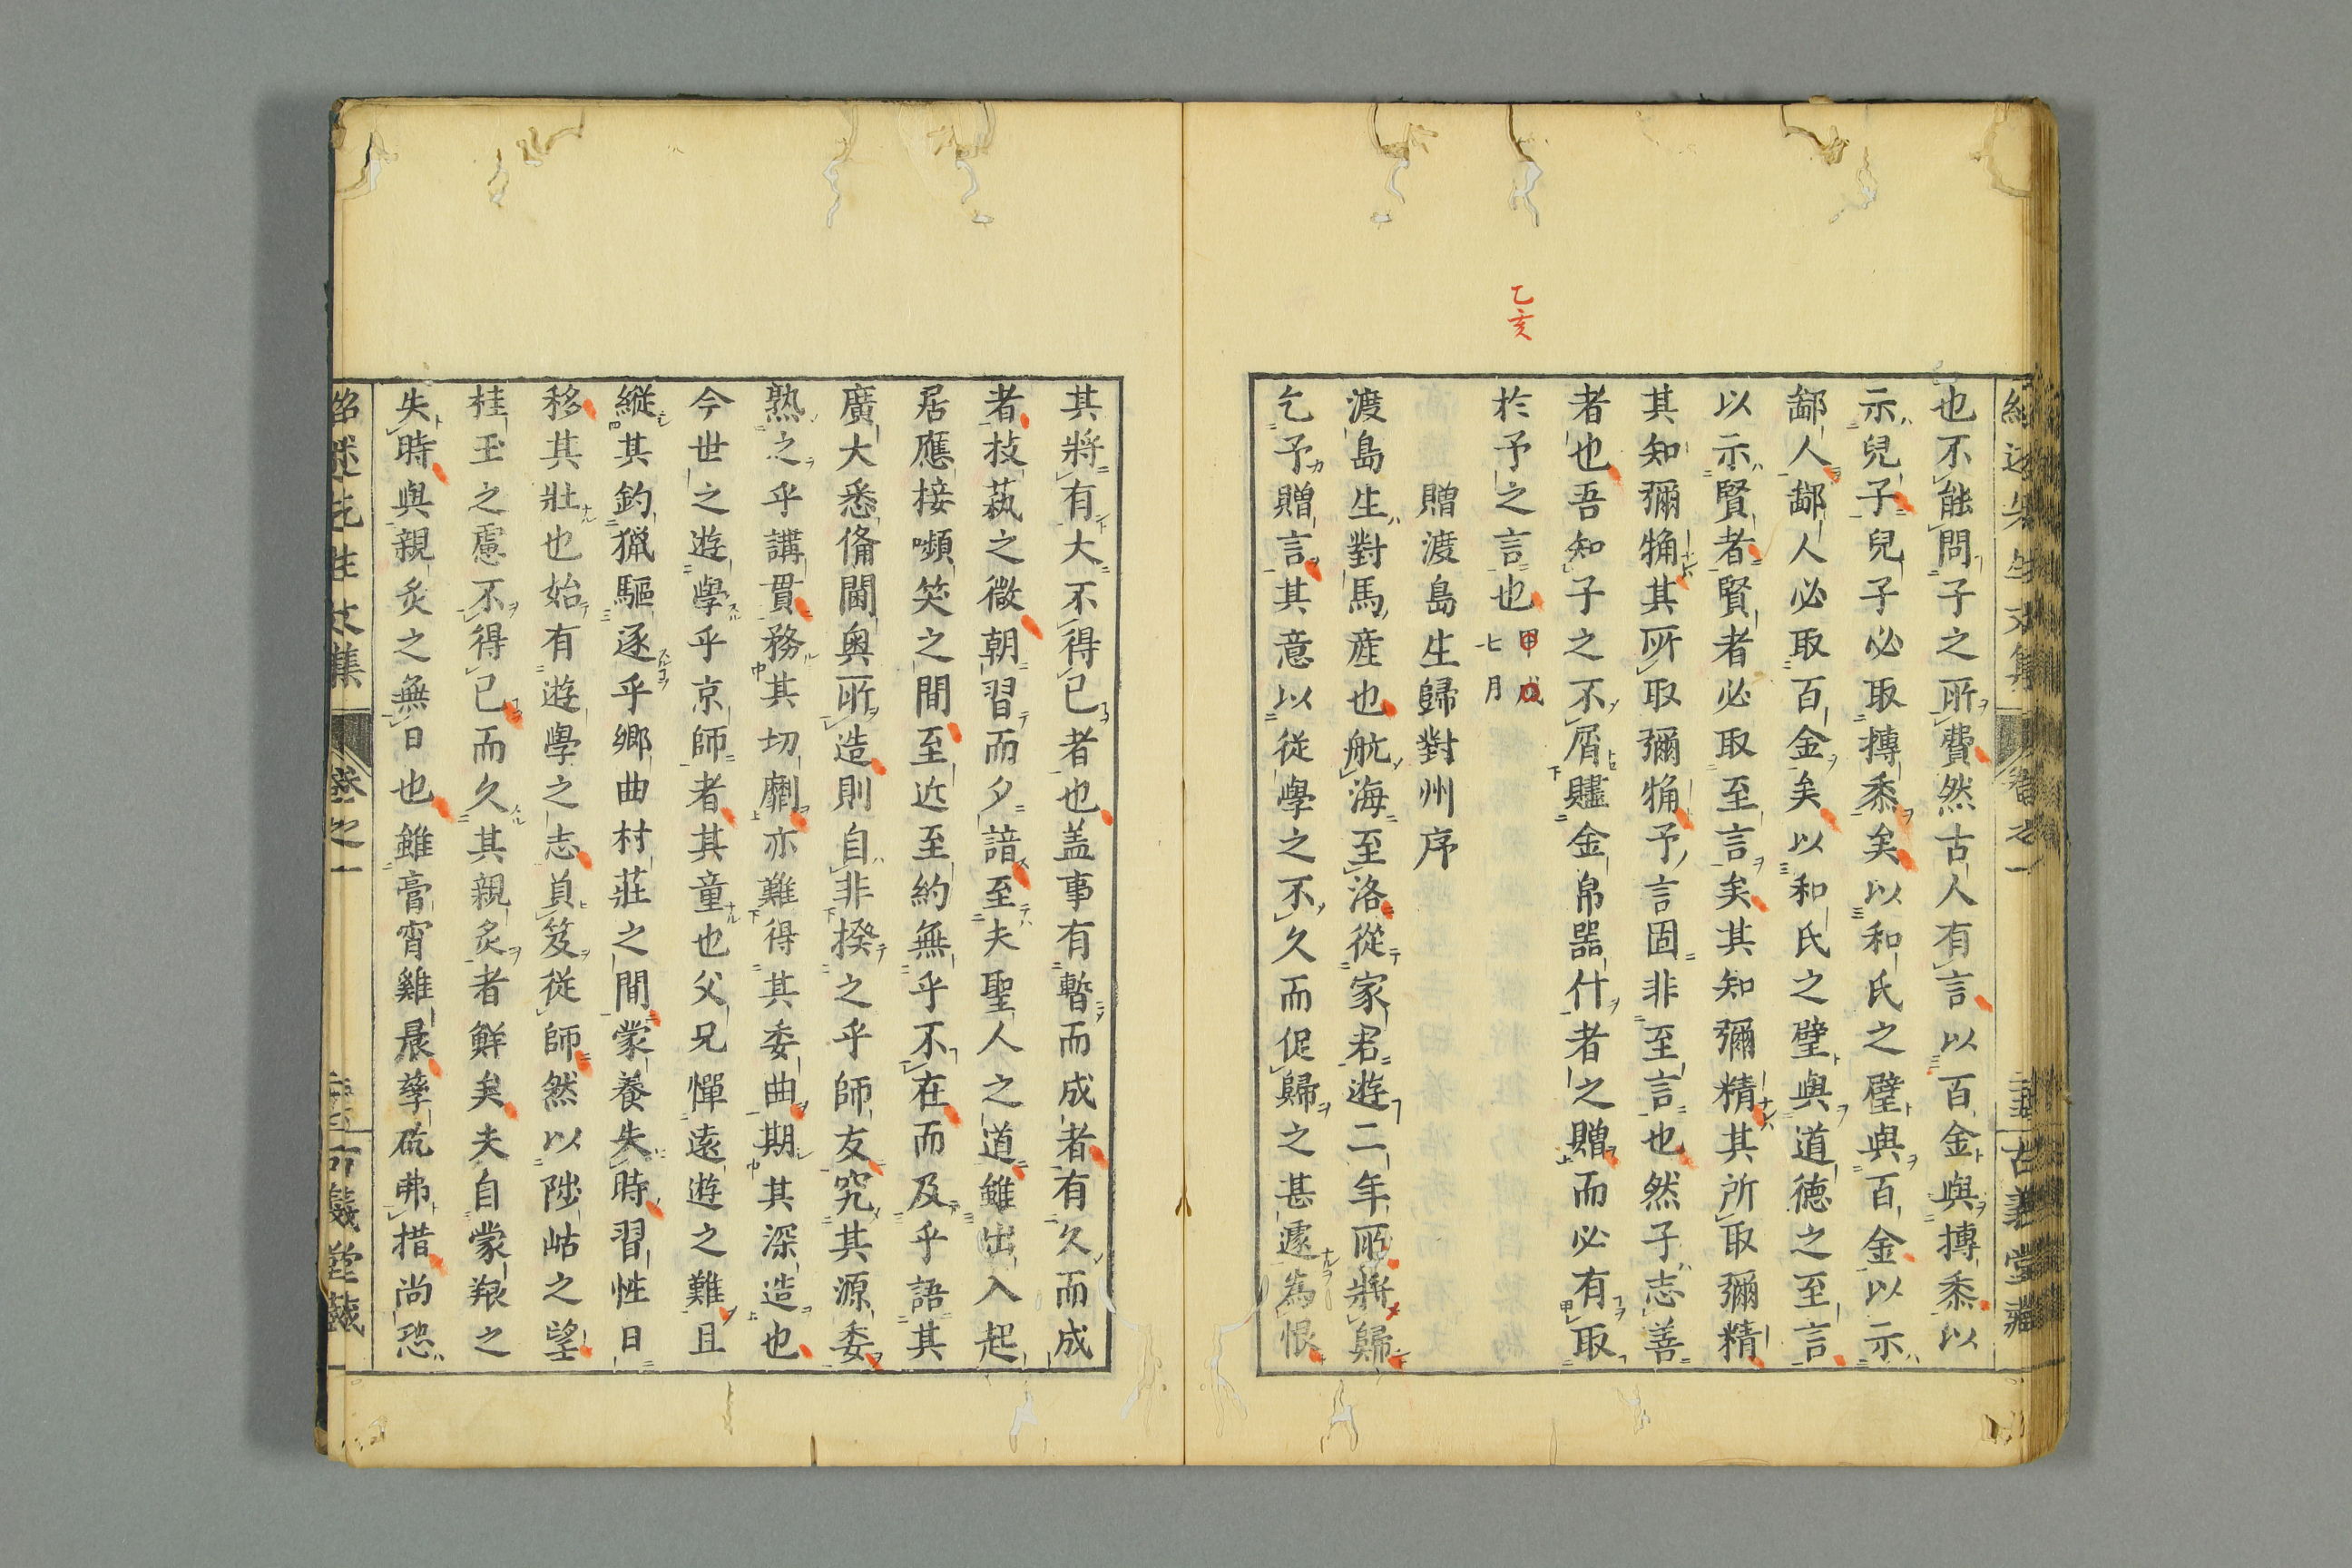 也不能問子之所費然古人有言以百金與摶黍以
示兒子兒子必取摶黍矣以和氏之璧與百金以示
鄙人鄙人必取百金矣以和氏之璧與道德之至言
以示賢者賢者必取至言矣其知彌精其所取彌精
其知彌觕其所取彌觕予言固非至言也然子志善
者也吾知子之不屑贐金帛器什者之贈而必有取
乙亥
於予之言也甲戌七月
贈渡島生歸對州序
渡島生對馬產也航海至洛從家君遊二年所將歸
乞予贈言其意以從學之不久而促歸之甚遽為恨
其將有大不得已者也盖事有暫而成者有久而成
者技蓺之微朝習而夕諳至夫聖人之道雖出入起
居應接嚬笑之間至近至約無乎不在而及乎語其
廣大悉備閫奥所造則自非揆之乎師友究其源委
熟之乎講貫務其切劘亦難得其委曲期其深造也
今世之遊學乎京師者其童也父兄憚遠遊之難且
縱其釣獵驅逐乎鄉曲村莊之間蒙養失時習性日
移其壯也始有遊學之志負笈從師然以陟岵之望
桂玉之慮不得已而久其親炙者鮮矣夫自蒙鞎之
失時與親炙之無日也雖膏宵雞晨孳矻弗措尚恐
紹述先生文集
卷之一
古義堂藏